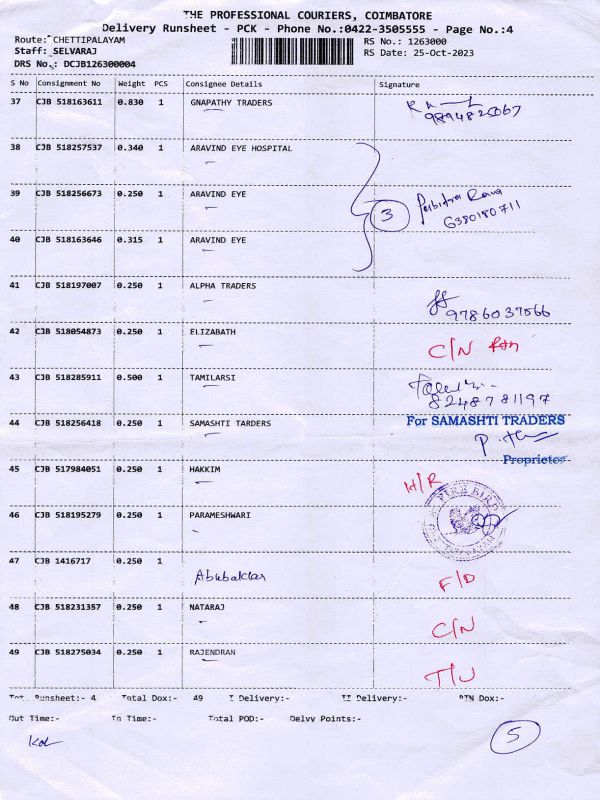 THE PROFESSIONAL COURIERS, COIMBATORE
Delivery Runsheet - PCK - Phone No.:0422-3505555 - Page No.:4
Route: CHETTIPALAYAM RS No.: 1263000
Staff: SELVARAJ RS Date: 25-Oct-2023
DRS No.: DCJB126300004
S No Consignment No Weight PCS Consignee Details Signature
37 CJB 518163611 0.830 1 GNAPATHY TRADERS
9894825067
38 CJB 518257537 0.340 1 ARAVIND EYE HOSPITAL
39 CJB 518256673 0.250 1 ARAVIND EYE
3
6380180711
40 CJB 518163646 0.315 1 ARAVIND EYE
41 CJB 518197007 0.250 1 ALPHA TRADERS
9786037566
42 CJB 518054873 0.250 1 ELIZABATH
C/N
43 CJB 518285911 0.500 1 TAMILARSI
8248781197
44 CJB 518256418 0.250 1 SAMASHTI TARDERS
For SAMASHTI TRADERS
Proprietor
45 CJB 517984051 0.250 1 HAKKIM
H/R
46 CJB 518195279 0.250 1 PARAMESHWARI
47 CJB 1416717 0.250 1
Abubakkar F/D
48 CJB 518231357 0.250 1 NATARAJ
C/N
49 CJB 518275034 0.250 1 RAJENDRAN
T/U
Tot. Runsheet:- 4 Total Dox:- 49 I Delivery:- II Delivery:- RTN Dox:-
Out Time:- In Time:- Total POD:- Delvy Points:-
5